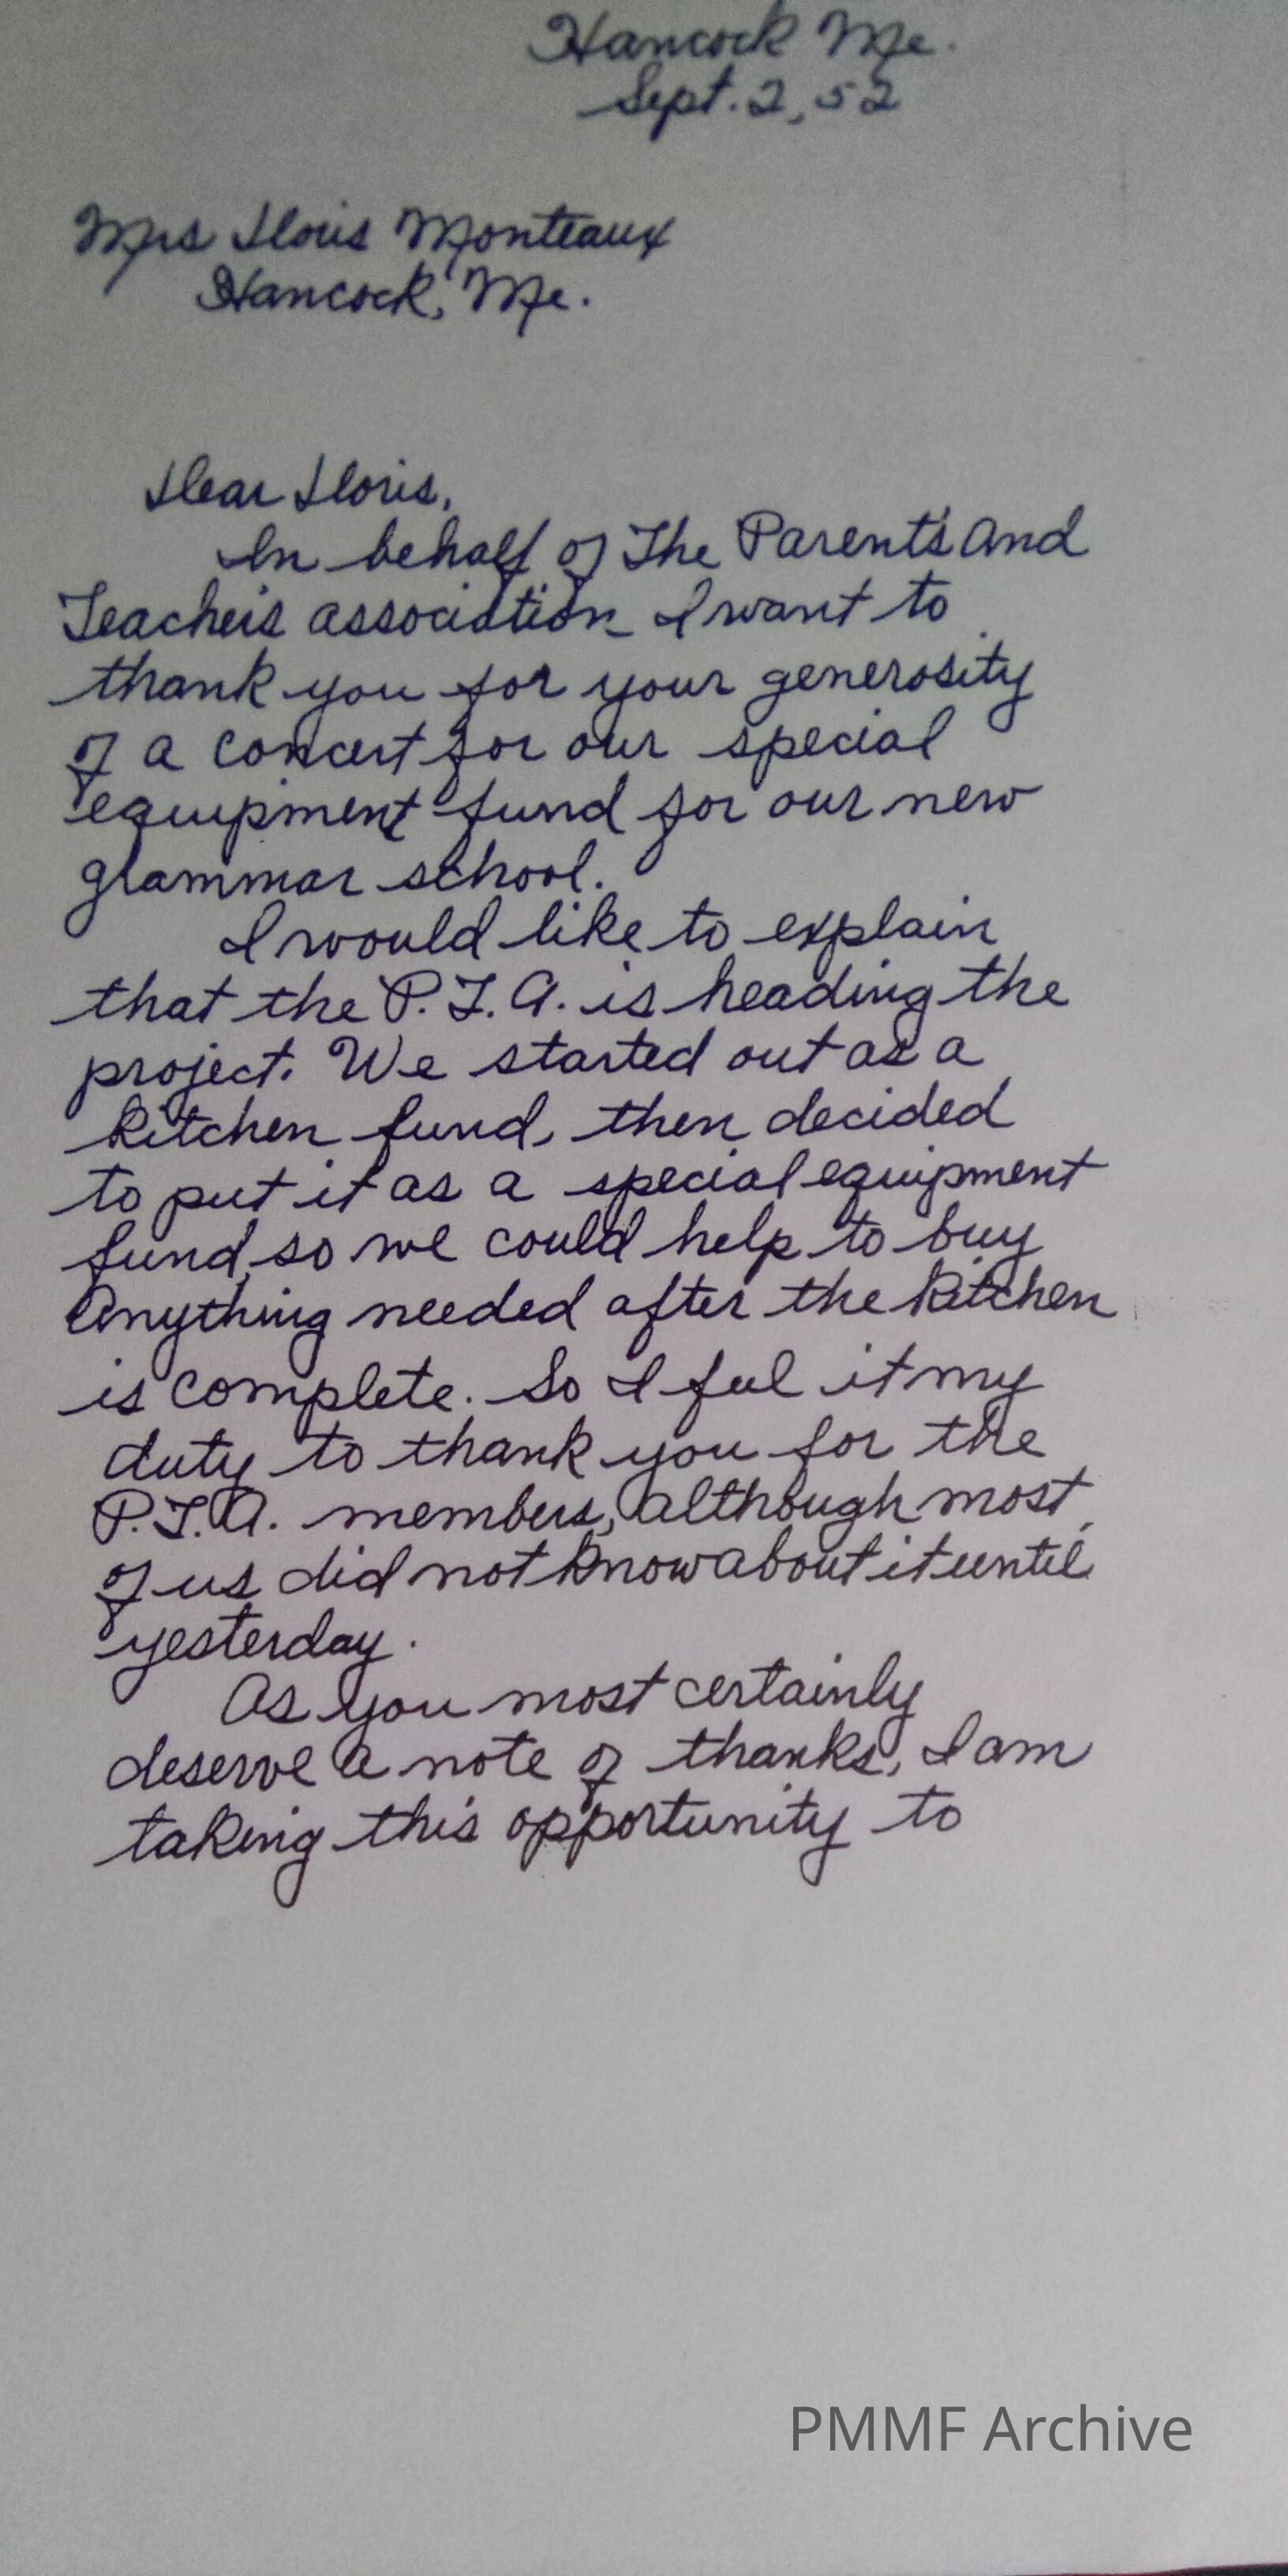 Hancock Me.
Sept. 2, 52
Mrs Doris Monteaux
Hancock, Me.
Dear Doris,
In behalf of The Parent's and
Teachers association I want to
thank you for your generosity
of a concert for our special
equipment fund for our new
grammar school.
I would like to explain
that the P.T.A. is heading the
project. We started out as a
kitchen fund, then decided
to put it as a special equipment
fund, so we could help to buy
anything needed after the kitchen
is complete. So I feel it my
duty to thank you for the
P.T.A. members, although most
of us did not know about it until
yesterday.
As you most certainly
deserve a note of thanks, I am
taking this opportunity to
PMMF Archive